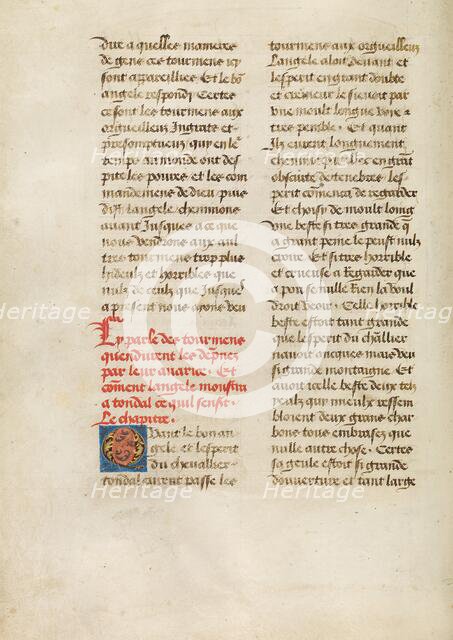 dire a quelles manieres
de gens ces tourmens icy
sont appareillies Et le bon
angele respondi Certes
ce sont les tourmens aux
orgueilleux Ingrats et
presomptueux quy en leur
temps au monde ont des
pite les poures et les com
mandemens de dieu puis
dist langele cheminons
auant Jusques a ce que
nous vendrons aux aul
tres tourmens trop plus
hideulx et horribles que
nulz de ceulx que Jusques
a present nous ayons veu
Cy parle des tourmens
quendurent les
par leur auarice. Et
coment langele monstra
a tondal ce quil sensit.
Le chapitre.
Quant le bon an
gele et lesperit
du cheuallier
tondal eurent passe les
tourmens aux orgueilleux
Langele aloit deuant et
lesperit en grant doubte
et cremeur le sieuoit par
vne moult longue voye et
tres penible. Et quant
Ilz eurent longuement
chemine par celles en grant
obscurte de tenebres les
perit comenca de regarder
Et choisy de moult loing
vne beste si tres grande q
a grant peine le peust nulz
croire Et si tres horrible
et crueuse a Regarder que
a pou se nulle Rien la voul
droit veoir. Celle horrible
beste estoit tant grande
que lesperit du chlallier
nauoit oncques mais veu
si grande montaigne Et
auoit icelle beste deux telz
yeulz qui mieulx ressem
bloient deux grans char
bons tous embrasez que
nulle autre chose. Certes
sa geule estoit si grande
douuerture et tant large
Heritage
Heritage
Heritage
Heritage
Heritage
Heritage